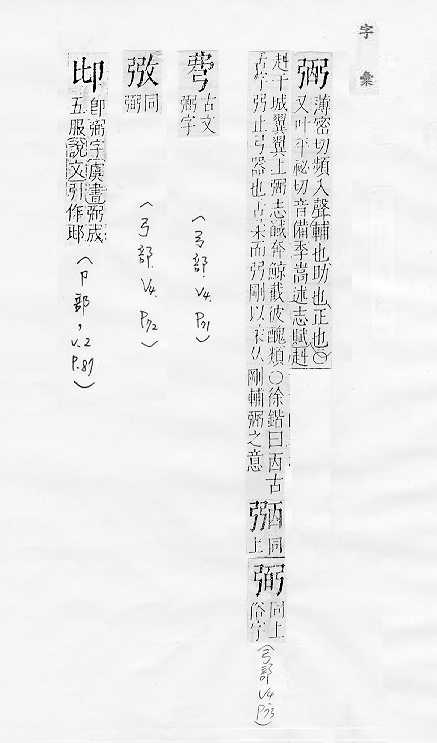 字彙
弻
薄密切頻入聲輔也助也正也○
又叶平祕切音備李嵩述志賦赳
赳干城翼翼上弼志馘奔鯨截彼醜類○徐鍇曰㐁古
字弼止弓器也舌柔而弼剛以柔从剛輔弼之意
㢸
同上
弼
同上
俗字
(弓部 V4. P.73)
古文
弼字
(弓部. V4. P71)
同
弼
(弓部. V4. P72)
即弼字虞書弼成
五服說文引作
(卩部, V.2 P.89)